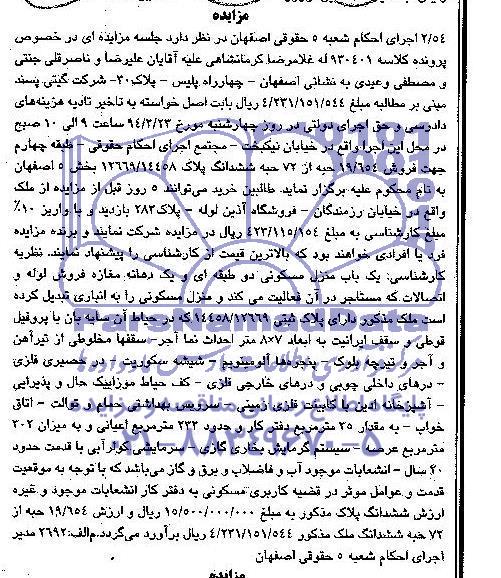 مزایده
۲/۵۴ اجرای احکام شعبه ۵ حقوقی اصفهان در نظر دارد جلسه مزایده ای در خصوص
پرونده کلاسه ۹۳۰۴۰۱ له غلامرضا کرمانشاهی علیه آقایان علیرضا و ناصرقلی جنتی
و مصطفی وعیدی به نشانی اصفهان - چهارراه پلیس - پلاک۳۰- شرکت گیتی پسند
مبنی بر مطالبه مبلغ ۴/۲۳۱/۱۵۱/۵۴۴ ریال بابت اصل خواسته به تاخیر تادیه هزینه‌های
دادرسی و حق اجرای دولتی در روز چهارشنبه مورخ ۹۴/۳/۲۳ ساعت ۹ الی ۱۰ صبح
در محل این اجرا واقع در خیابان نیکبخت - مجتمع اجرای احکام حقوقی - طبقه چهارم
جهت فروش ۱۹/۶۵۴ حبه از ۷۲ حبه ششدانگ پلاک ۱۲۶۶۹/۱۴۴۵۸ بخش ۵ اصفهان
به نام محکوم علیه برگزار نماید. طالبین خرید می‌توانند ۵ روز قبل از مزایده از ملک
واقع در خیابان رزمندگان - فروشگاه آذین لوله - پلاک۲۸۳ بازدید و با واریز ۱۰٪
مبلغ کارشناسی به مبلغ ۴۲۳/۱۱۵/۱۵۴ ریال در مزایده شرکت نمایند و برنده مزایده
فرد یا افرادی خواهند بود که بالاترین قیمت از کارشناسی را پیشنهاد نمایند. نظریه
کارشناسی: یک باب منزل مسکونی دو طبقه ای و یک دهانه مغازه فروش لوله و
اتصالات که مستاجر در آن فعالیت می کند و منزل مسکونی را به انباری تبدیل کرده
است ملک مذکور دارای پلاک ثبتی ۱۴۴۵۸/۱۲۶۶۹ که در حیاط آن سایه بان با پروفیل
قوطی و سقف ایرانیت به ابعاد ۷×۸ متر احداث نما آجر-سقفها مخلوطی از تیرآهن
و آجر و تیرچه بلوک - پنجره‌ها آلومینیوم - شیشه سکوریت - در حصیری فلزی
- درهای داخلی چوبی و درهای خارجی فلزی - کف حیاط موزاییک حال و پذیرایی
- آشپزخانه اپن با کابینت فلزی زمینی - سرویس بهداشتی حمام و توالت - اتاق
خواب - به مقدار ۲۵ مترمربع دفتر کار و حدود ۲۳۳ مترمربع اعیانی و به میزان ۳۰۲
مترمربع عرصه - سیستم گرمایش بخاری گازی - سرمایشی کولرآبی با قدمت حدود
۲۰ سال - انشعابات موجود آب و فاضلاب و برق و گاز می‌باشد که با توجه به موقعیت
قدمت و عوامل موثر در قضیه کاربری مسکونی به دفتر کار انشعابات موجود و غیره
ارزش ششدانگ پلاک مذکور به مبلغ ۱۵/۵۰۰/۰۰۰/۰۰۰ ریال و ارزش ۱۹/۶۵۴ حبه از
۷۲ حبه ششدانگ ملک مذکور ۴/۲۳۱/۱۵۱/۵۴۴ ریال برآورد می‌گردد.م‌الف:۲۶۹۲ مدیر
اجرای احکام شعبه ۵ حقوقی اصفهان
مزایده
ParsNamadData
پایگاه اطلاع رسانی مناقصه و مزایده
۰۲۱-۸۸۳۴۹۶۷۰-۵